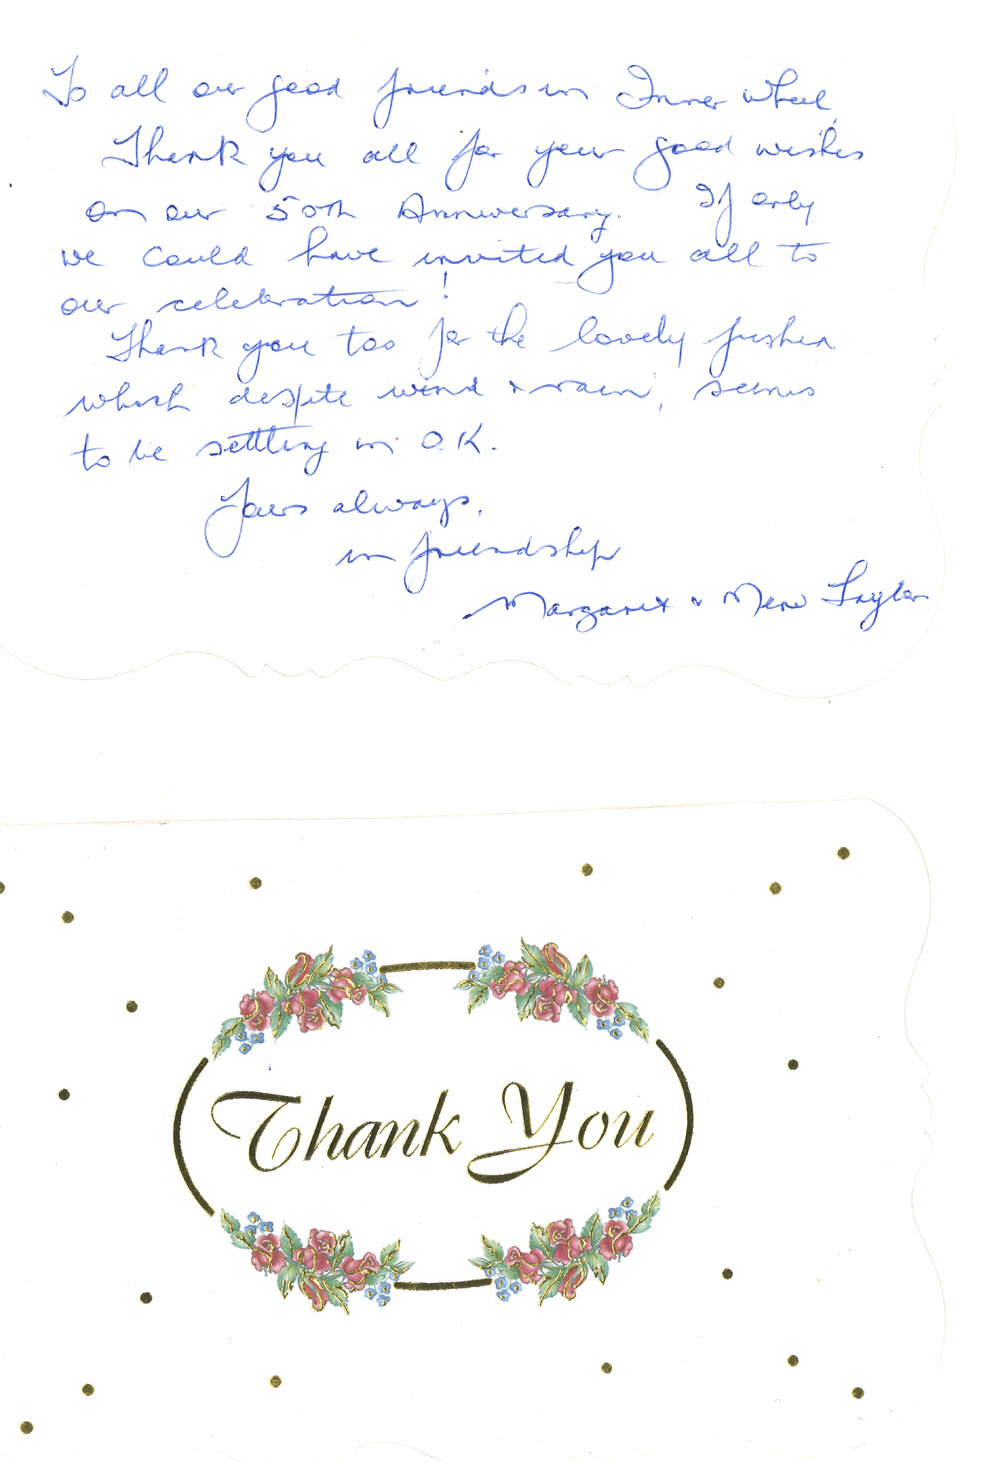 To all our good friends in Inner Wheel,
Thank you all for your good wishes
on our 50th Anniversary. If only
we could have invited you all to
our celebration!
Thank you too for the lovely fushia
which despite wind & rain, seems
to be settling in O.K.
Yours always,
in friendship
Margaret & Merv Taylor
Thank You